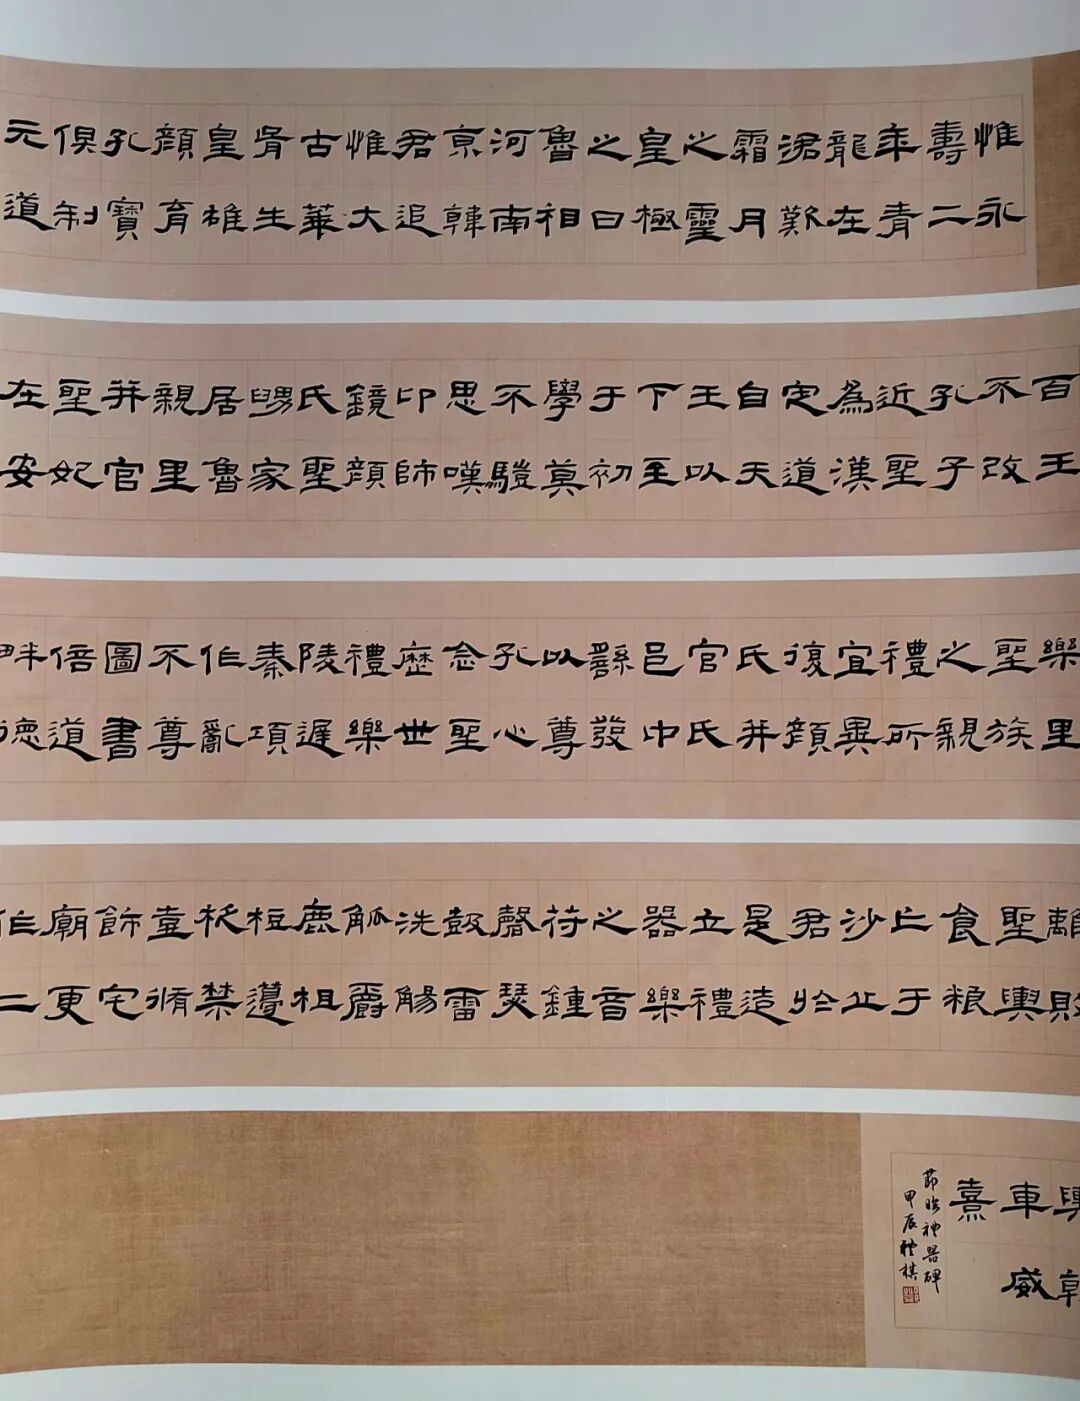 惟永壽二年青龍在涒歎霜月之靈皇極之日魯相河南京韓君追惟大古華胥生皇雄顏育孔寶俱制元道
百王不改孔子近聖為漢定道自天王以下至于初學莫不驥思嘆卬師鏡顏氏聖舅家居魯親里并官聖妃在安
樂里聖族之親禮所宜異復顏氏并官氏邑中繇發以尊孔心念聖歷世禮樂陵遲秦項作亂不尊圖書倍道畔德
離敗聖輿食粮亡于沙丘君於是造立禮器樂之音符鍾磬瑟鼓雷洗觴觚爵鹿柤梪籩柉禁壺脩飾宅廟更作二
輿朝車威熹
節臨禮器碑
甲辰禮棋